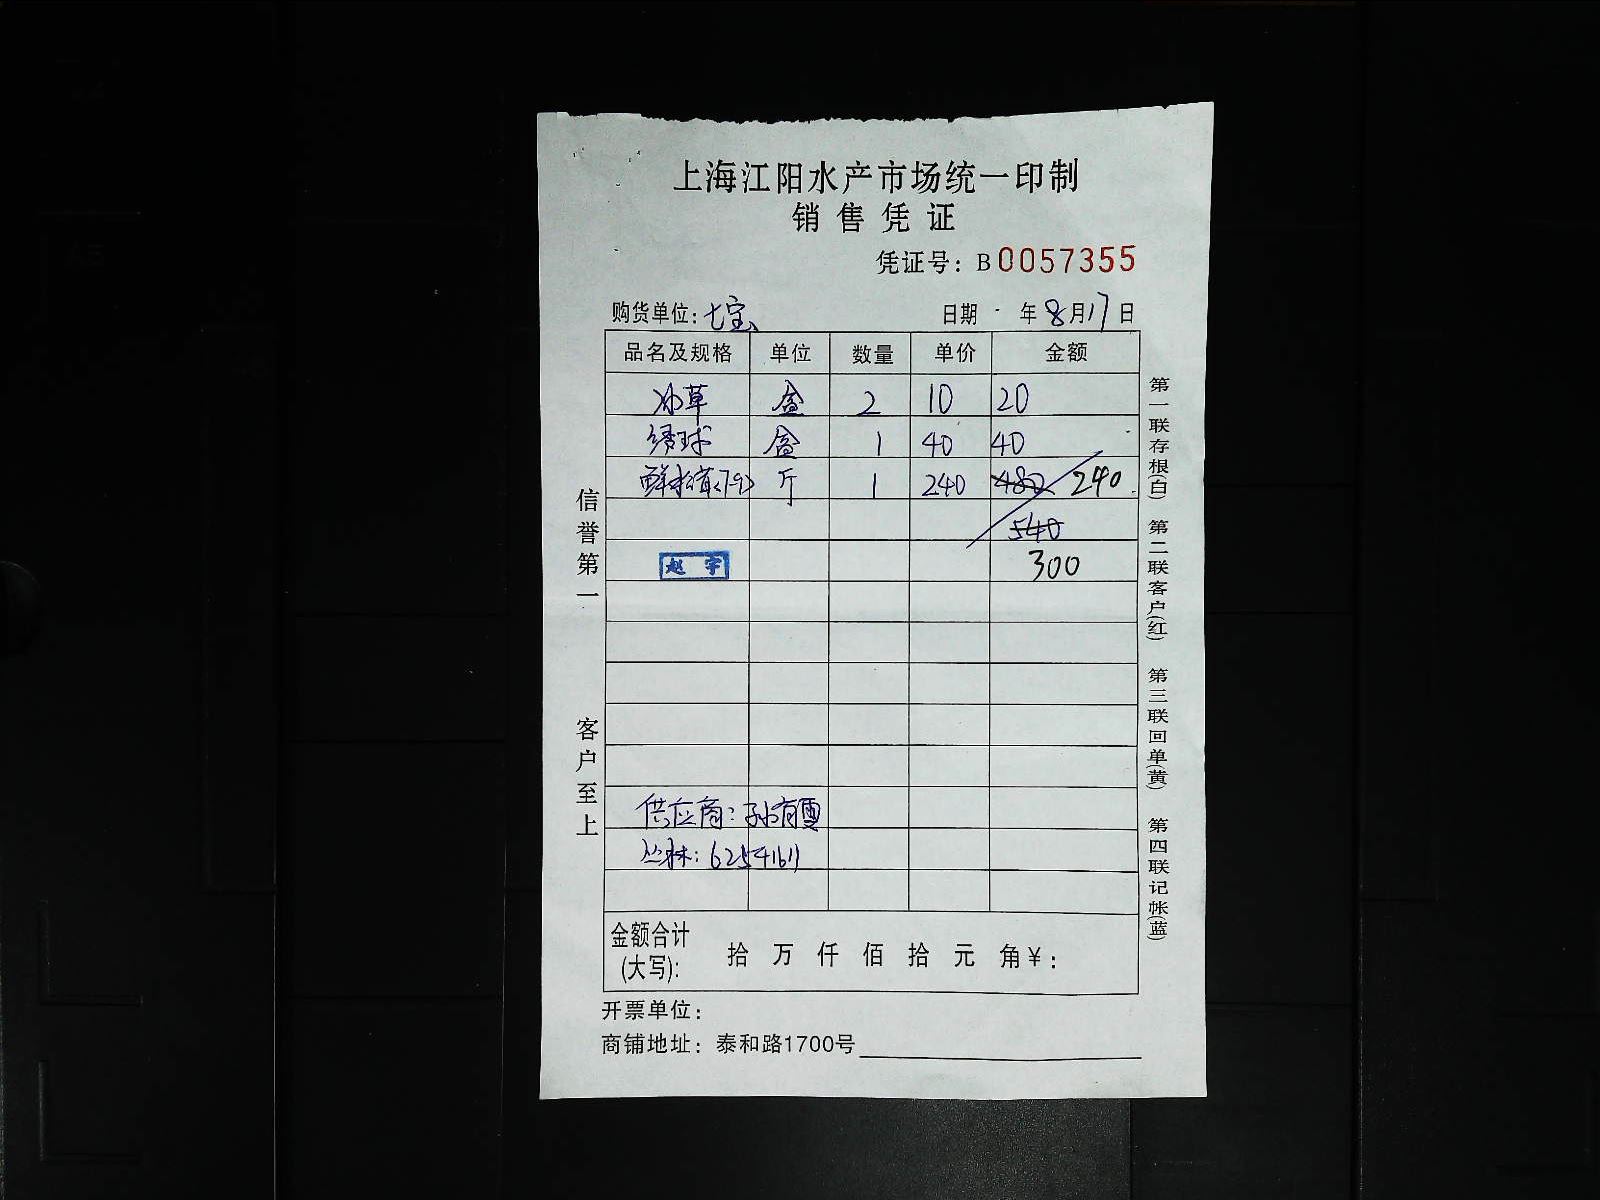 上海江阳水产市场统一印制
销售凭证
凭证号：B0057355
购货单位：七宝 日期 年8月17日
品名及规格 单位 数量 单价 金额
冰草 盒 2 10 20
绣球 盒 1 40 40
鲜松茸<7-9> 斤 1 240 480 240
540
赵宇 300
供应商：孙有雪
丛林：62541611
金额合计
(大写)： 拾 万 仟 佰 拾 元 角￥：
开票单位：
商铺地址：泰和路1700号
信誉第一
客户至上
第一联存根(白)
第二联客户(红)
第三联回单(黄)
第四联记帐(蓝)